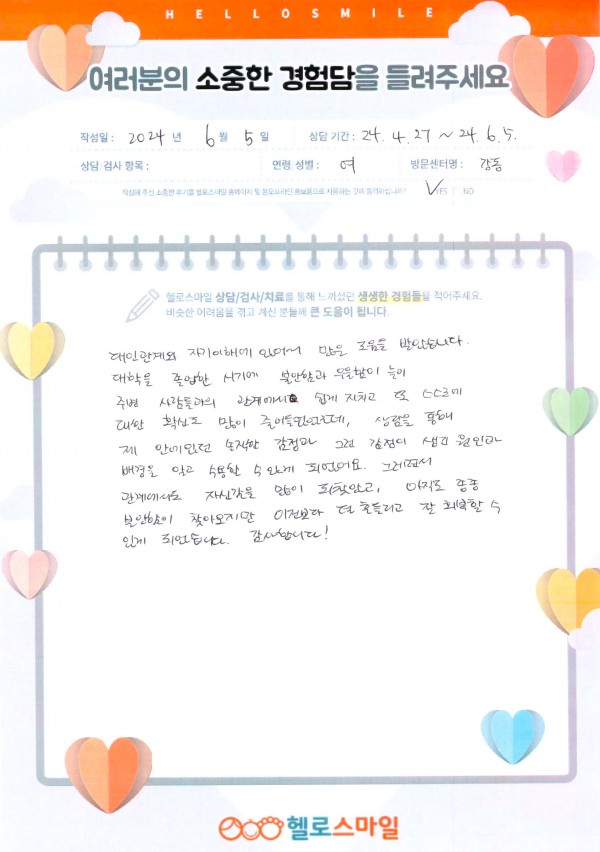 HELLOSMILE
여러분의 소중한 경험담을 들려주세요
작성일 : 2024 년 6 월 5 일 상담 기간 : 24. 4. 27 ~ 24. 6. 5.
상담·검사 항목 : 연령·성별 : 여 방문센터명 : 강동
작성해 주신 소중한 후기를 헬로스마일 홈페이지 및 온오프라인 홍보용으로 사용하는 것에 동의하십니까? ✓YES | NO
헬로스마일 상담/검사/치료를 통해 느끼셨던 생생한 경험들을 적어주세요.
비슷한 어려움을 겪고 계신 분들께 큰 도움이 됩니다.
대인관계와 자기이해에 있어서 많은 도움을 받았습니다.
대학을 졸업한 시기에 불안함과 우울함이 높아
주변 사람들과의 관계에서 쉽게 지치고 또 스스로에
대한 확신도 많이 줄어들었었는데, 상담을 통해
제 안에 있던 솔직한 감정과 그런 감정이 생긴 원인과
배경을 알고 수용할 수 있게 되었어요. 그러면서
관계에서도 자신감을 많이 되찾았고, 아직도 종종
불안함이 찾아오지만 이전보다 덜 흔들리고 잘 회복할 수
있게 되었습니다. 감사합니다!
헬로스마일